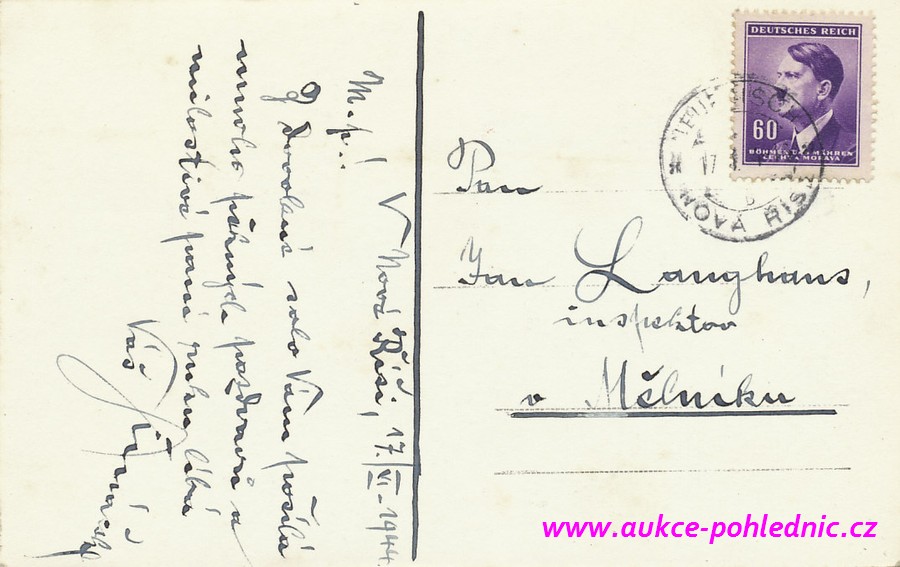 M. p.!
V Nové Říši, 17./VI. 1944.
Z dovolené solo Vám posílá
mnoho pěkných pozdravů a
milostivé paní ruku líbá
Váš
Pan
Jan Langhans,
inspektor
v Mělníku
DEUTSCHES REICH
60
BÖHMEN UND MÄHREN
ČECHY A MORAVA
NOVÁ ŘÍŠE
17
www.aukce-pohlednic.cz